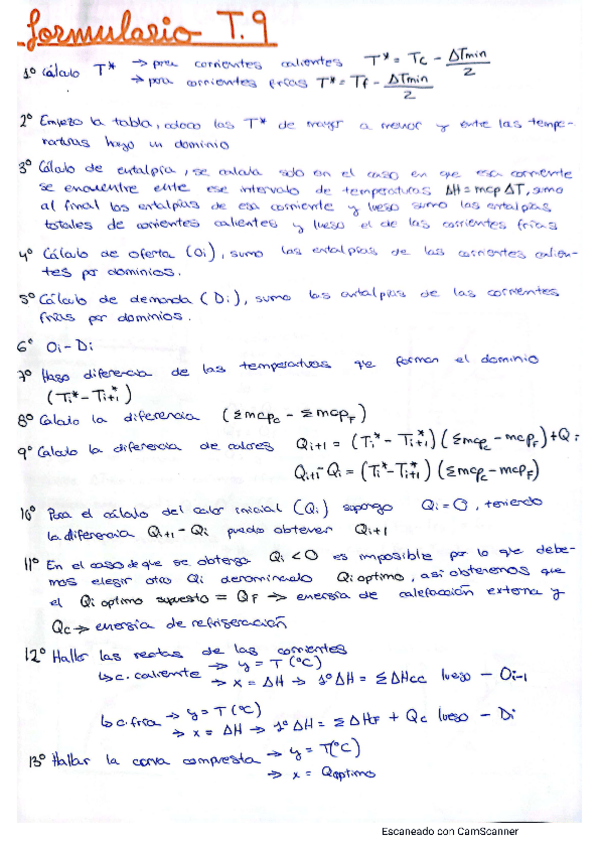 formulario T.9
1º Cálculo T* → para corrientes calientes T* = Tc - ΔTmin/2
→ para corrientes frías T* = Tf - ΔTmin/2
2º Empiezo la tabla, coloco las T* de mayor a menor y entre las tempe-
raturas hago un dominio
3º Cálculo de entalpía, se calcula solo en el caso en que esa corriente
se encuentre entre ese intervalo de temperaturas ΔH = mcp ΔT, sumo
al final las entalpías de esa corriente y luego sumo las entalpías
totales de corrientes calientes y luego el de las corrientes frías
4º Cálculo de oferta (Oi), sumo las entalpías de las corrientes calien-
tes por dominios.
5º Cálculo de demanda (Di), sumo las entalpías de las corrientes
frías por dominios.
6º Oi - Di
7º Hago diferencia de las temperaturas que forman el dominio
(Ti* - Ti+1*)
8º Calculo la diferencia (Σmcpc - Σmcpf)
9º Calculo la diferencia de calores Qi+1 = (Ti* - Ti+1*) (Σmcpc - mcpf) + Qi
Qi+1 - Qi = (Ti* - Ti+1*) (Σmcpc - mcpf)
10º Para el cálculo del calor inicial (Qi) supongo Qi = 0, teniendo
la diferencia Qi+1 - Qi puedo obtener Qi+1
11º En el caso de que se obtenga Qi < 0 es imposible por lo que debe-
mos elegir otro Qi denominado Qi optimo, así obtenemos que
el Qi optimo supuesto = QF → energía de calefacción externa y
Qc → energía de refrigeración
12º Hallar las rectas de las corrientes
↳ c. caliente → y = T (ºC)
→ x = ΔH → 1º ΔH = ΣΔHcc luego - Oi-1
↳ c. fría → y = T (ºC)
→ x = ΔH → 1º ΔH = ΣΔHF + Qc luego - Di
13º Hallar la curva compuesta → y = T(ºC)
→ x = Qoptimo
Escaneado con CamScanner